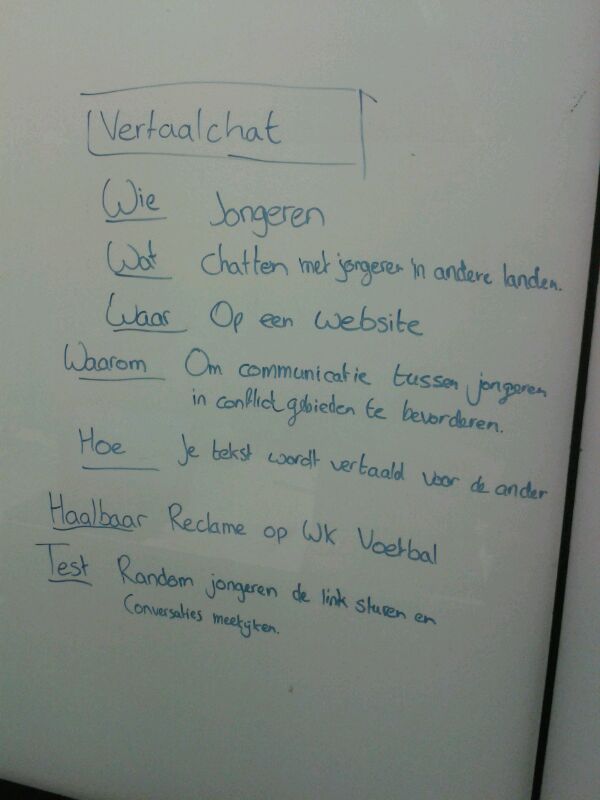 Vertaalchat
Wie Jongeren
Wat Chatten met jongeren in andere landen.
Waar Op een website
Waarom Om communicatie tussen jongeren
in conflict gebieden te bevorderen.
Hoe Je tekst wordt vertaald voor de ander
Haalbaar Reclame op WK Voetbal
Test Random jongeren de link sturen en
Conversaties meekijken.